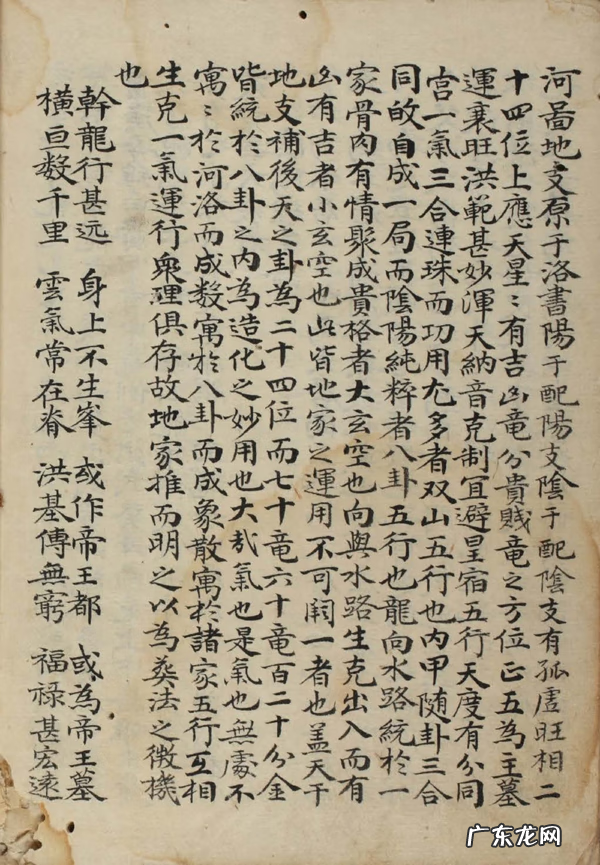 河啚地支原于洛書陽于配陽支陰于配陰支有孤虛旺相二
十四位上應天星〻有吉凶竜分貴賤竜之方位正五為主墓
運衰旺洪範甚妙渾天納音克制宜避星宿五行天度有分同
宮一氣三合連珠而功用尢多者双山五行也内甲随卦三合
同的自成一局而陰陽純粹者八卦五行也龍向水路統於一
家骨肉有情聚成貴格者大玄空也向與水路生克出入而有
凶有吉者小玄空也此皆地家之運用不可闕一者也盖天干
地支補後天之卦為二十四位而七十竜六十竜百二十分金
皆統於八卦之内為造化之妙用也大㢤氣也是氣也無處不
寓〻於河洛而成数寓於八卦而成象散寓於諸家五行互相
生克一氣運行衆理俱存故地家推而明之以為葬法之微機
也
幹龍行甚远 身上不生峯 或作帝王都 或為帝王墓
橫亘数千里 雲氣常在脊 洪基傳無窮 福禄甚宏遠
广东龙网